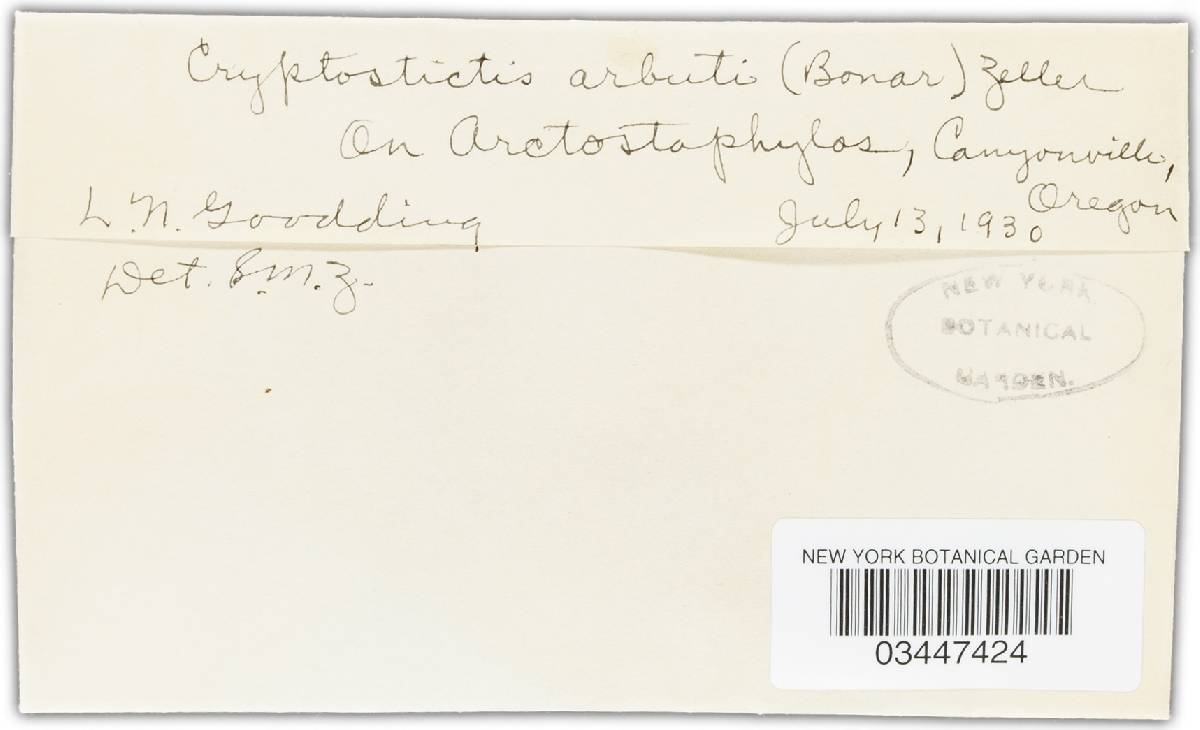 Cryptostictis arbuti (Bonar) Zeller
On Arctostaphylos, Canyonville,
Oregon
L. N. Goodding July 13, 1930
Det. S.M.Z.
NEW YORK
BOTANICAL
GARDEN.
NEW YORK BOTANICAL GARDEN
03447424